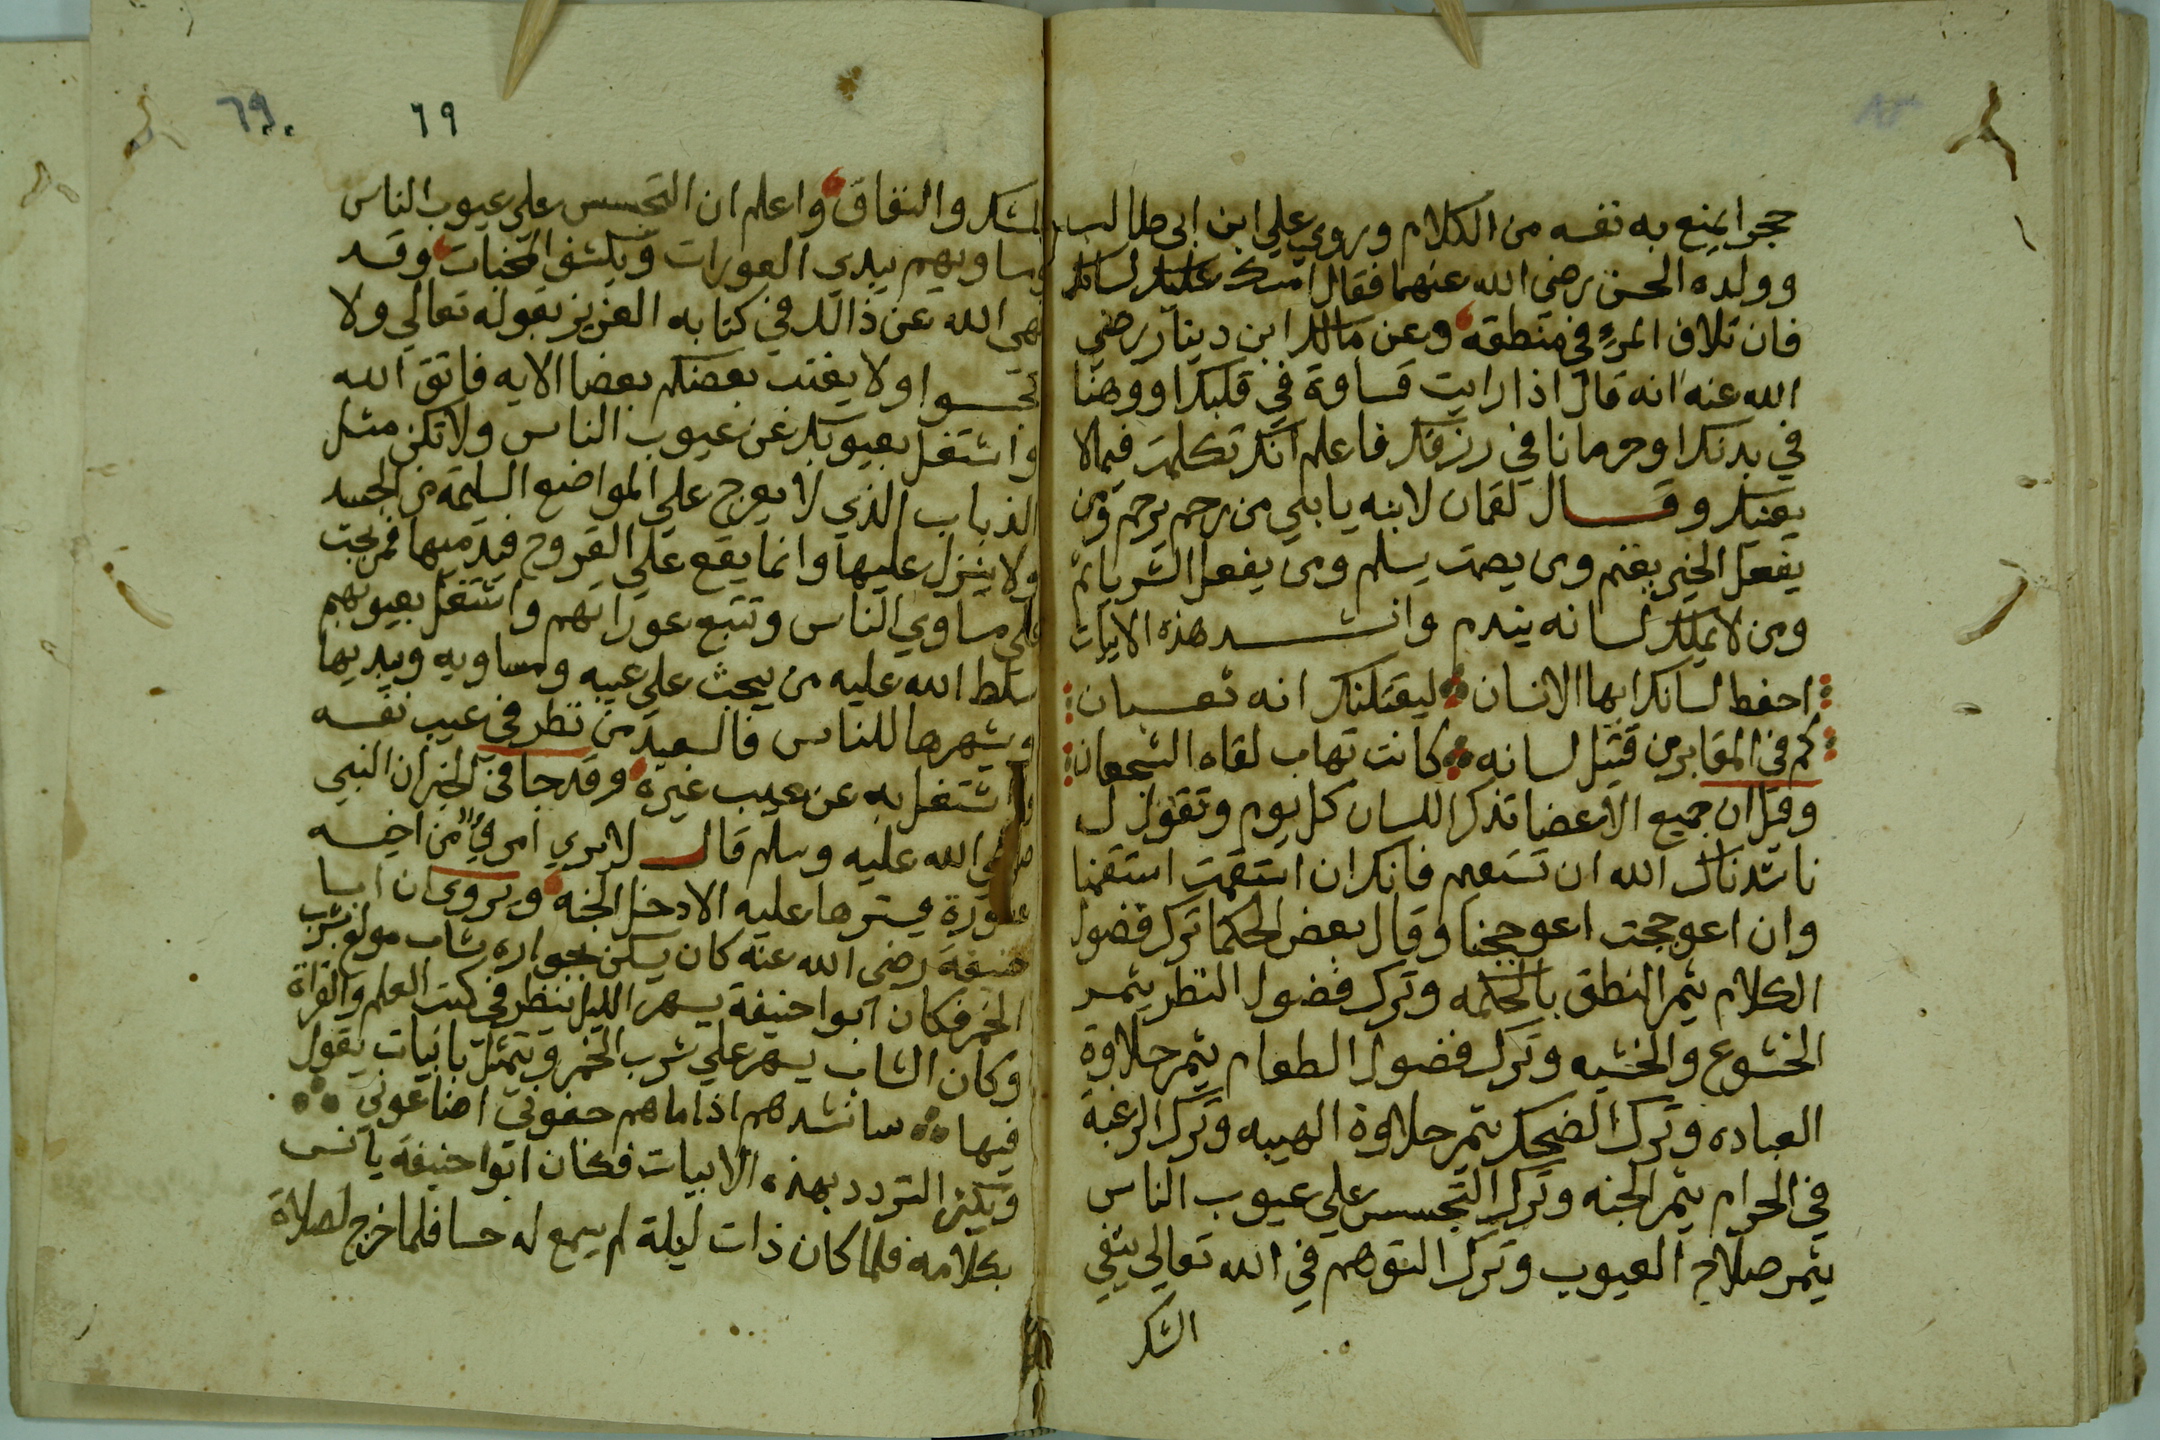 حجرا يمنع به نفسه من الكلام وروي علي ابن ابي طالب
وولده الحسن رضي الله عنهما فقال امسك عليك لسانك
فان تلاف المرء في منطقه وعن مالك ابن دينار رضي
الله عنه انه قال اذا رايت قساوة في قلبك او وهنا
في بدنك او حرمانا في رزقك فاعلم انك تكلمت فيما لا
يعنيك وقال لقمان لابنه يا بني من رحم يرحم ومن
يفعل الخير يغنم ومن يصمت يسلم ومن يفعل الشر ياثم
ومن لا يملك لسانه يندم وانشد هذه الابيات
احفظ لسانك ايها الانسان ليقتلنك انه ثعبان
كم في المقابر من قتيل لسانه كانت تهاب لقاه الشجعان
وقيل ان جميع الاعضا تذكر اللسان كل يوم وتقول ل
ناشدناك الله ان تستقيم فانك ان استقمت استقمنا
وان اعوججت اعوججنا وقال بعض الحكما ترك فضول
الكلام يثمر النطق بالحكمه وترك فضول النظر يثمر
الخشوع والخشيه وترك فضول الطعام يثمر حلاوة
العباده وترك الضحك يثمر حلاوة الهيبه وترك الرغبة
في الحرام يثمر الجنه وترك التجسس علي عيوب الناس
يثمر صلاح العيوب وترك التوهم في الله تعالي ينفي
الشك
٦٩ ٦٩
الشك والنفاق واعلم ان التجسس علي عيوب الناس
ومساويهم يبدي العورات ويكشف المخبات وقد
نهي الله عن ذالك في كتابه العزيز بقوله تعالي ولا
تجسسوا ولا يغتب بعضكم بعضا الايه فاتق الله
واشتغل بعيوبك عن عيوب الناس ولا تكن مثل
الذباب الذي لا يعرج علي المواضع السليمة من الجسد
ولا ينزل عليها وانما يقع علي القروح فيدميها فمن بحث
علي مساوي الناس وتتبع عوراتهم واشتغل بعيوبهم
سلط الله عليه من يبحث علي عيبه ومساويه ويبديها
ويشهرها للناس فالسعيد من نظر في عيب نفسه
واشتغل به عن عيب غيره وقد جا في الخبر ان النبي
صلي الله عليه وسلم قال لا يري امرؤ من اخيه
عورة يسترها عليه الا دخل الجنه ويروي ان ابا
حنيفة رضي الله عنه كان يسكن بجواره شاب مولع بشرب
الخمر فكان ابوا حنيفة يسهر الليل ينظر في كتب العلم والقراة
وكان الشاب يسهر علي شرب الخمر ويتمثل بابيات يقول
فيها سانشدهم اذا ما هم جفوني اضاعوني
ويكثر التردد بهذه الابيات فكان ابوا حنيفة يانس
بكلامه فلما كان ذات ليلة لم يسمع له حسا فلما خرج لصلاة